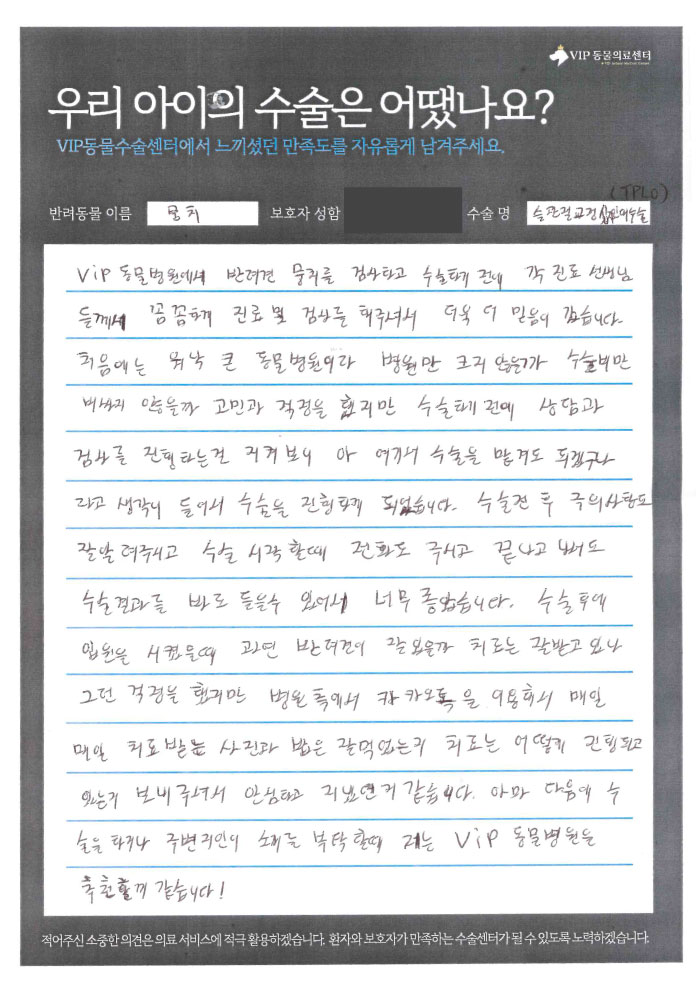 VIP 동물의료센터
우리 아이의 수술은 어땠나요?
VIP동물수술센터에서 느끼셨던 만족도를 자유롭게 남겨주세요.
(TPLO)
반려동물 이름 뭉치 보호자 성함 수술 명 슬관절교정
VIP 동물병원에서 반려견 뭉치를 검사하고 수술하기 전에 각 진료 선생님
들께서 꼼꼼하게 진료 및 검사를 해주셔서 더욱 더 믿음이 갔습니다.
처음에는 워낙 큰 동물병원이라 병원만 크지 않을까 수술비만
비싸지 않을까 고민과 걱정을 했지만 수술하기 전에 상담과
검사를 진행하는건 지켜보니 아 여기서 수술을 맡겨도 되겠구나
라고 생각이 들어서 수술을 진행하게 되었습니다. 수술전 후 주의사항도
잘 알려주시고 수술 시작할때 전화도 주시고 끝나고 나서도
수술결과를 바로 들을수 있어서 너무 좋았습니다. 수술후에
입원을 시켰을때 과연 반려견이 잘있을까 치료는 잘받고있나
그런 걱정을 했지만 병원측에서 카카오톡을 이용해서 매일
매일 치료받는 사진과 밥은 잘먹었는지 치료는 어떻게 진행되고
있는지 보내주셔서 안심하고 지냈던거 같습니다. 아마 다음에 수
술을 하거나 주변지인이 소개를 부탁할때 저는 VIP 동물병원을
추천할꺼 같습니다!
적어주신 소중한 의견은 의료 서비스에 적극 활용하겠습니다. 환자와 보호자가 만족하는 수술센터가 될 수 있도록 노력하겠습니다.